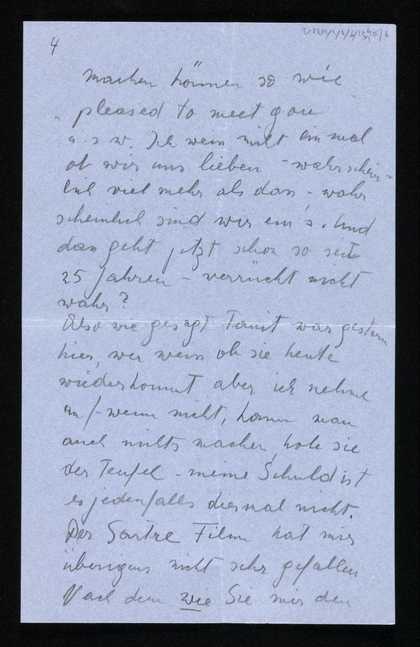 4
machen können so wie
„pleased to meet you
u.s.w. Ich weiss nicht einmal
ob wir uns lieben - wahrschein-
lich viel mehr als das - wahr
scheinlich sind wir ein's. Und
das geht jetzt schon so seit
25 Jahren - verrückt nicht
wahr?
Also wie gesagt Tanit war gestern
hier, wer weiss ob sie heute
wiederkommt aber ich nehme
an / - wenn nicht, kann man
auch nichts machen, hole sie
der Teufel - meine Schuld ist
es jedenfalls diesmal nicht.
Der Sartre Film hat mir
übrigens nicht sehr gefallen
Nach dem wie Sie mir den